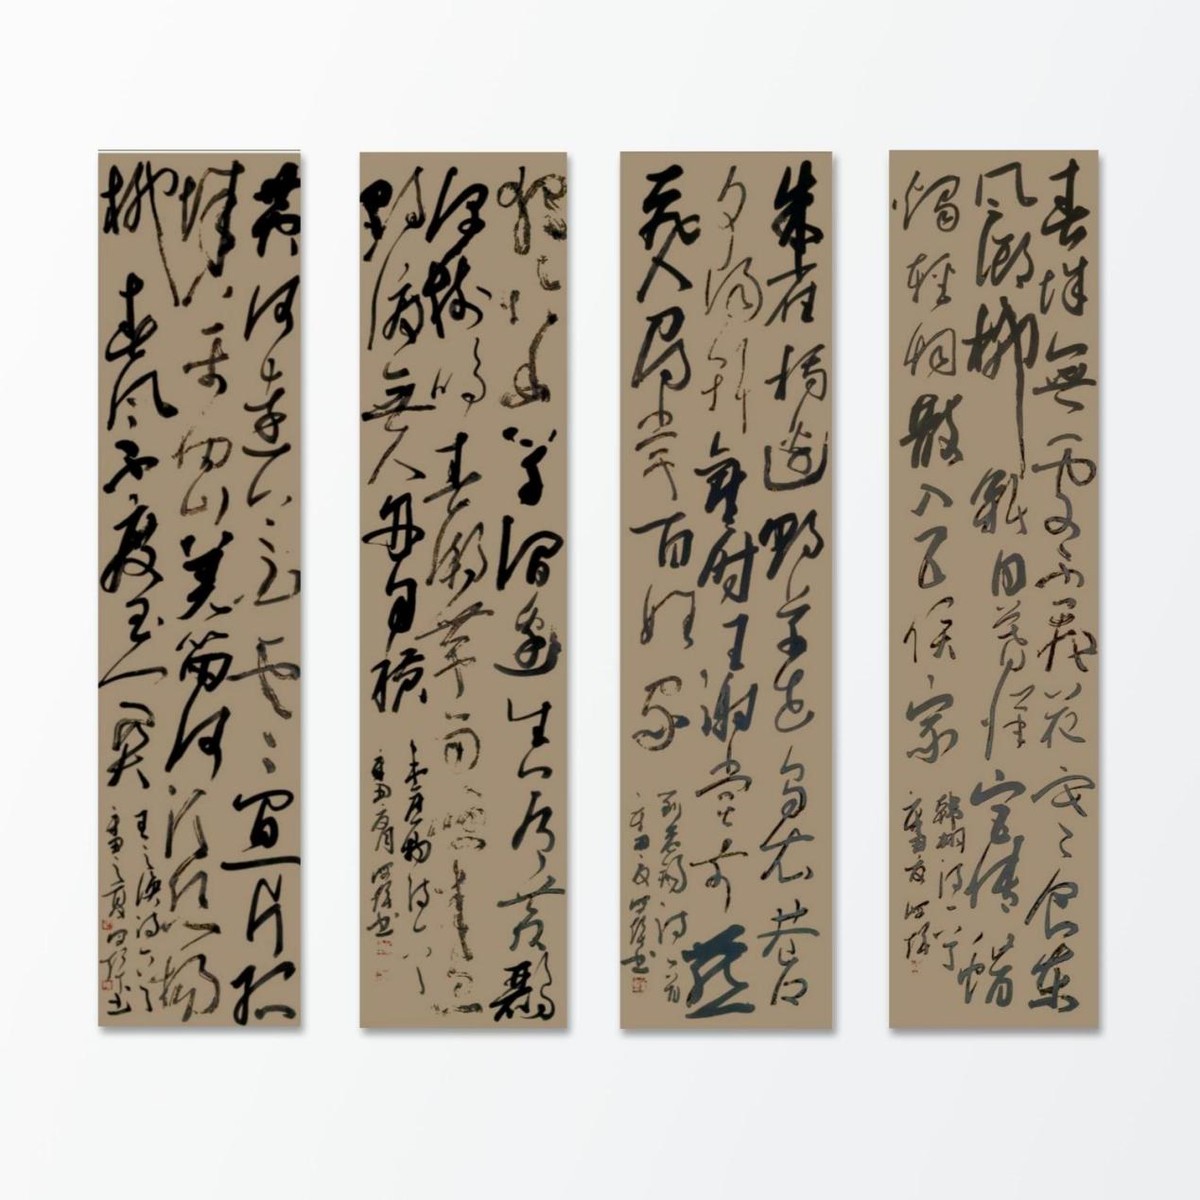 春城無處不飛花寒食東
風御柳斜日暮漢宮傳蠟
燭輕烟散入五侯家
韓翃詩一首
朱雀橋邊野草花烏衣巷口
夕陽斜舊時王謝堂前燕
飛入尋常百姓家
劉禹錫詩一首
獨憐幽草澗邊生上有黃鸝
深樹鳴春潮帶雨晚來急
野渡無人舟自橫
韋應物詩一首
黃河遠上白雲間一片孤
城萬仞山羌笛何須怨楊
柳春風不度玉門關
王之渙詩一首